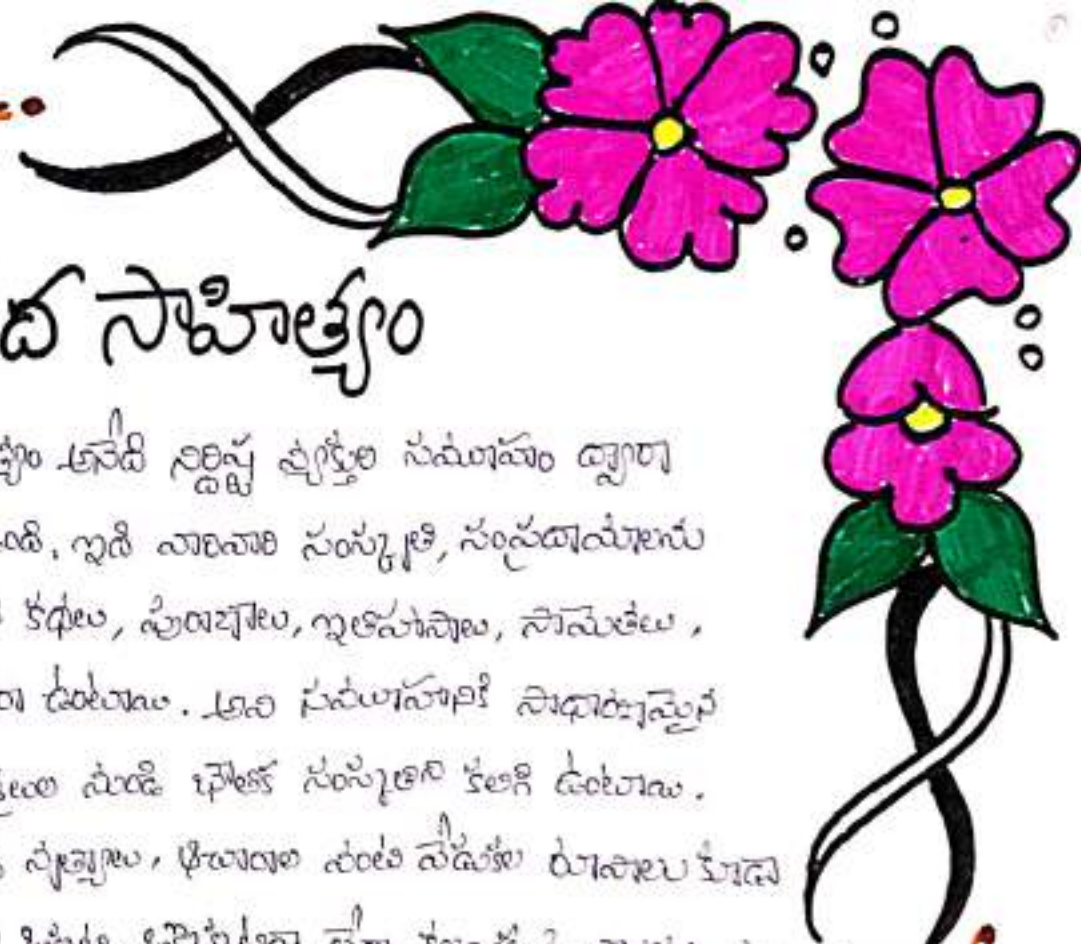 ద సాహిత్యం
త్యం అనేది నిర్దిష్ట వ్యక్తుల సమూహం ద్వారా
ఇది వారివారి సంస్కృతి, సంప్రదాయాలను
కథలు, పురాణాలు, ఇతిహాసాలు, సామెతలు,
రా ఉంటాయి. అవి సమూహానికి సాధారణమైన
నుండి భౌతిక సంస్కృతిని కలిగి ఉంటాయి.
నృత్యాలు, ఆచారాల వంటి వేడుకల రూపాలు కూడా